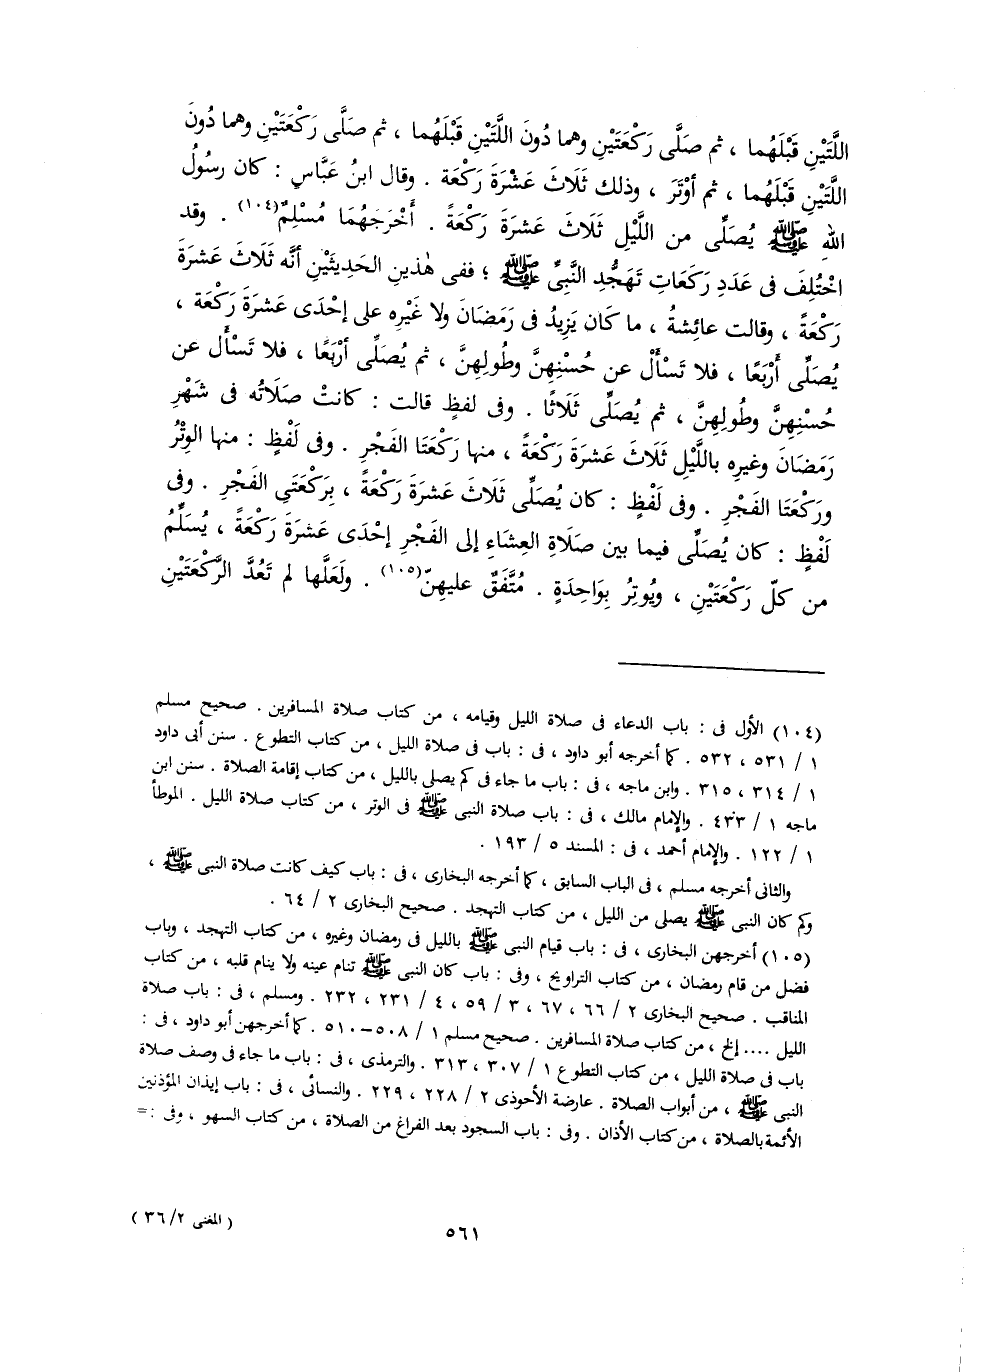 اللَّتَيْنِ قَبْلَهُما ، ثم صَلَّى رَكْعَتَيْنِ وهما دُونَ اللَّتَيْنِ قَبْلَهُما ، ثم صَلَّى رَكْعَتَيْنِ وهما دُونَ
اللَّتَيْنِ قَبْلَهُما ، ثم أوْتَرَ ، وذلك ثَلَاثَ عَشْرَةَ رَكْعَة . وقال ابنُ عَبَّاسٍ : كان رسُولُ
اللهِ ﷺ يُصَلِّى من اللَّيْلِ ثَلَاثَ عَشْرَةَ رَكْعَةً . أَخْرَجَهُمَا مُسْلِمٌ(١٠٤) . وقد
اخْتُلِفَ فى عَدَدِ رَكَعَاتِ تَهَجُّدِ النَّبِىِّ ﷺ ؛ ففى هٰذين الحَدِيثَيْنِ أنَّه ثَلَاثَ عَشرَةَ
رَكْعَةً ، وقالت عائِشةُ ، ما كان يَزِيدُ فى رَمَضَانَ ولا غَيْرِه على إحْدَى عَشرَةَ رَكْعَة ،
يُصَلِّى أَرْبَعًا ، فلا تَسْأَلْ عن حُسْنِهِنَّ وطُولِهِنَّ ، ثم يُصَلِّى أرْبَعًا ، فلا تَسْأَل عن
حُسْنِهِنَّ وطُولِهِنَّ ، ثم يُصَلِّى ثَلَاثًا . وفى لفظٍ قالت : كانتْ صَلَاتُه فى شَهْرِ
رَمَضَانَ وغيرِه باللَّيْلِ ثَلَاثَ عَشْرَةَ رَكْعَةً ، منها رَكْعَتَا الفَجْرِ . وفى لَفْظٍ : منها الوِتْرُ
ورَكْعَتَا الفَجْرِ . وفى لَفْظٍ : كان يُصَلِّى ثَلَاثَ عَشْرَةَ رَكْعَةً ، بِرَكْعَتَىِ الفَجْرِ . وفى
لَفْظٍ : كان يُصَلِّى فيما بين صَلَاةِ العِشَاءِ إلى الفَجْرِ إحْدَى عَشْرَةَ رَكْعَةً ، يُسَلِّمُ
من كلّ رَكْعَتَيْنِ ، ويُوتِرُ بِوَاحِدَةٍ . مُتَّفَقٌ عليهِنّ(١٠٥) . ولَعَلَّها لم تَعُدَّ الرَّكْعَتَيْنِ
(١٠٤) الأول فى : باب الدعاء فى صلاة الليل وقيامه ، من كتاب صلاة المسافرين . صحيح مسلم
١ / ٥٣١ ، ٥٣٢ . كما أخرجه أبو داود ، فى : باب فى صلاة الليل ، من كتاب التطوع . سنن أبى داود
١ / ٣١٤ ، ٣١٥ . وابن ماجه ، فى : باب ما جاء فى كم يصلى بالليل ، من كتاب إقامة الصلاة . سنن ابن
ماجه ١ / ٤٣٣ . والإمام مالك ، فى : باب صلاة النبى ﷺ فى الوتر ، من كتاب صلاة الليل . الموطأ
١ / ١٢٢ . والإمام أحمد ، فى : المسند ٥ / ١٩٣ .
والثانى أخرجه مسلم ، فى الباب السابق ، كما أخرجه البخارى ، فى : باب كيف كانت صلاة النبى ﷺ ،
وكم كان النبى ﷺ يصلى من الليل ، من كتاب التهجد . صحيح البخارى ٢ / ٦٤ .
(١٠٥) أخرجهن البخارى ، فى : باب قيام النبى ﷺ بالليل فى رمضان وغيره ، من كتاب التهجد ، وباب
فضل من قام رمضان ، من كتاب التراويح ، وفى : باب كان النبى ﷺ تنام عينه ولا ينام قلبه ، من كتاب
المناقب . صحيح البخارى ٢ / ٦٦ ، ٦٧ ، ٣ / ٥٩ ، ٤ / ٢٣١ ، ٢٣٢ . ومسلم ، فى : باب صلاة
الليل .... إلخ ، من كتاب صلاة المسافرين . صحيح مسلم ١ / ٥٠٨-٥١٠ . كما أخرجهن أبو داود ، فى :
باب فى صلاة الليل ، من كتاب التطوع ١ / ٣٠٧ ، ٣١٣ . والترمذى ، فى : باب ما جاء فى وصف صلاة
النبى ﷺ ، من أبواب الصلاة . عارضة الأحوذى ٢ / ٢٢٨ ، ٢٢٩ . والنسائى ، فى : باب إيذان المؤذنين
الأئمة بالصلاة ، من كتاب الأذان . وفى : باب السجود بعد الفراغ من الصلاة ، من كتاب السهو ، وفى :=
٥٦١
( المغنى ٣٦/٢ )